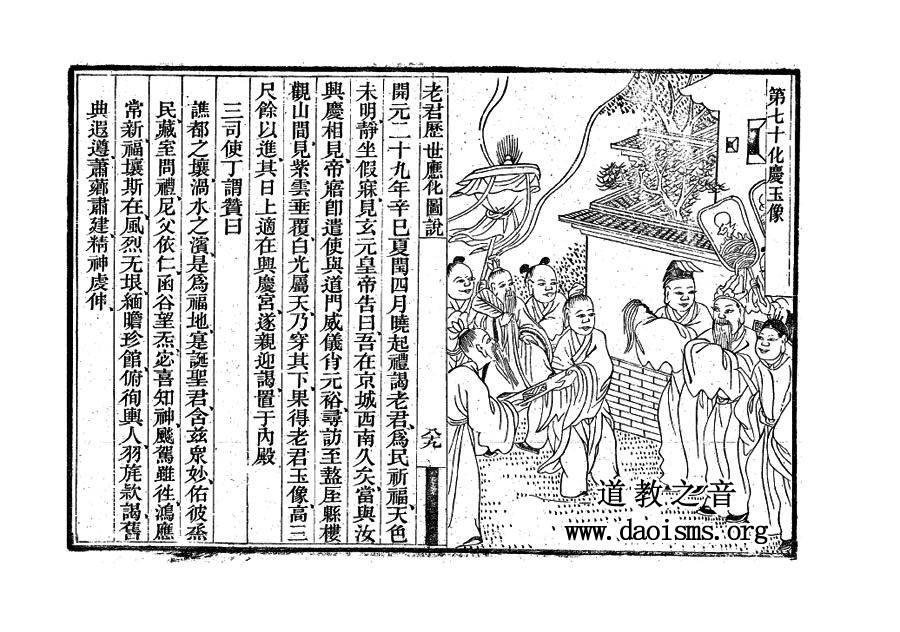 第七十化慶玉像
老君歷世應化圖說
開元二十九年辛巳夏閏四月曉起禮謁老君為民祈福天色
未明靜坐假寐見玄元皇帝告曰吾在京城西南久矣當與汝
興慶相見帝寤卽遣使與道門威儀肖元裕尋訪至盩厔縣樓
觀山間見紫雲垂覆白光屬天乃穿其下果得老君玉像高三
尺餘以進其日上適在興慶宮遂親迎謁置于內殿
三司使丁謂贊曰
譙都之壤渦水之濱是為福地寔誕聖君含茲眾妙佑彼烝
民藏室問禮尼父依仁函谷望炁宓喜知神飈駕雖徃鴻應
常新福壤斯在風烈无垠緬瞻珍館俯徇輿人羽旄款謁舊
典遐遵蕭薌肅建精神虔伸
八九
道教之音
www.daoisms.org